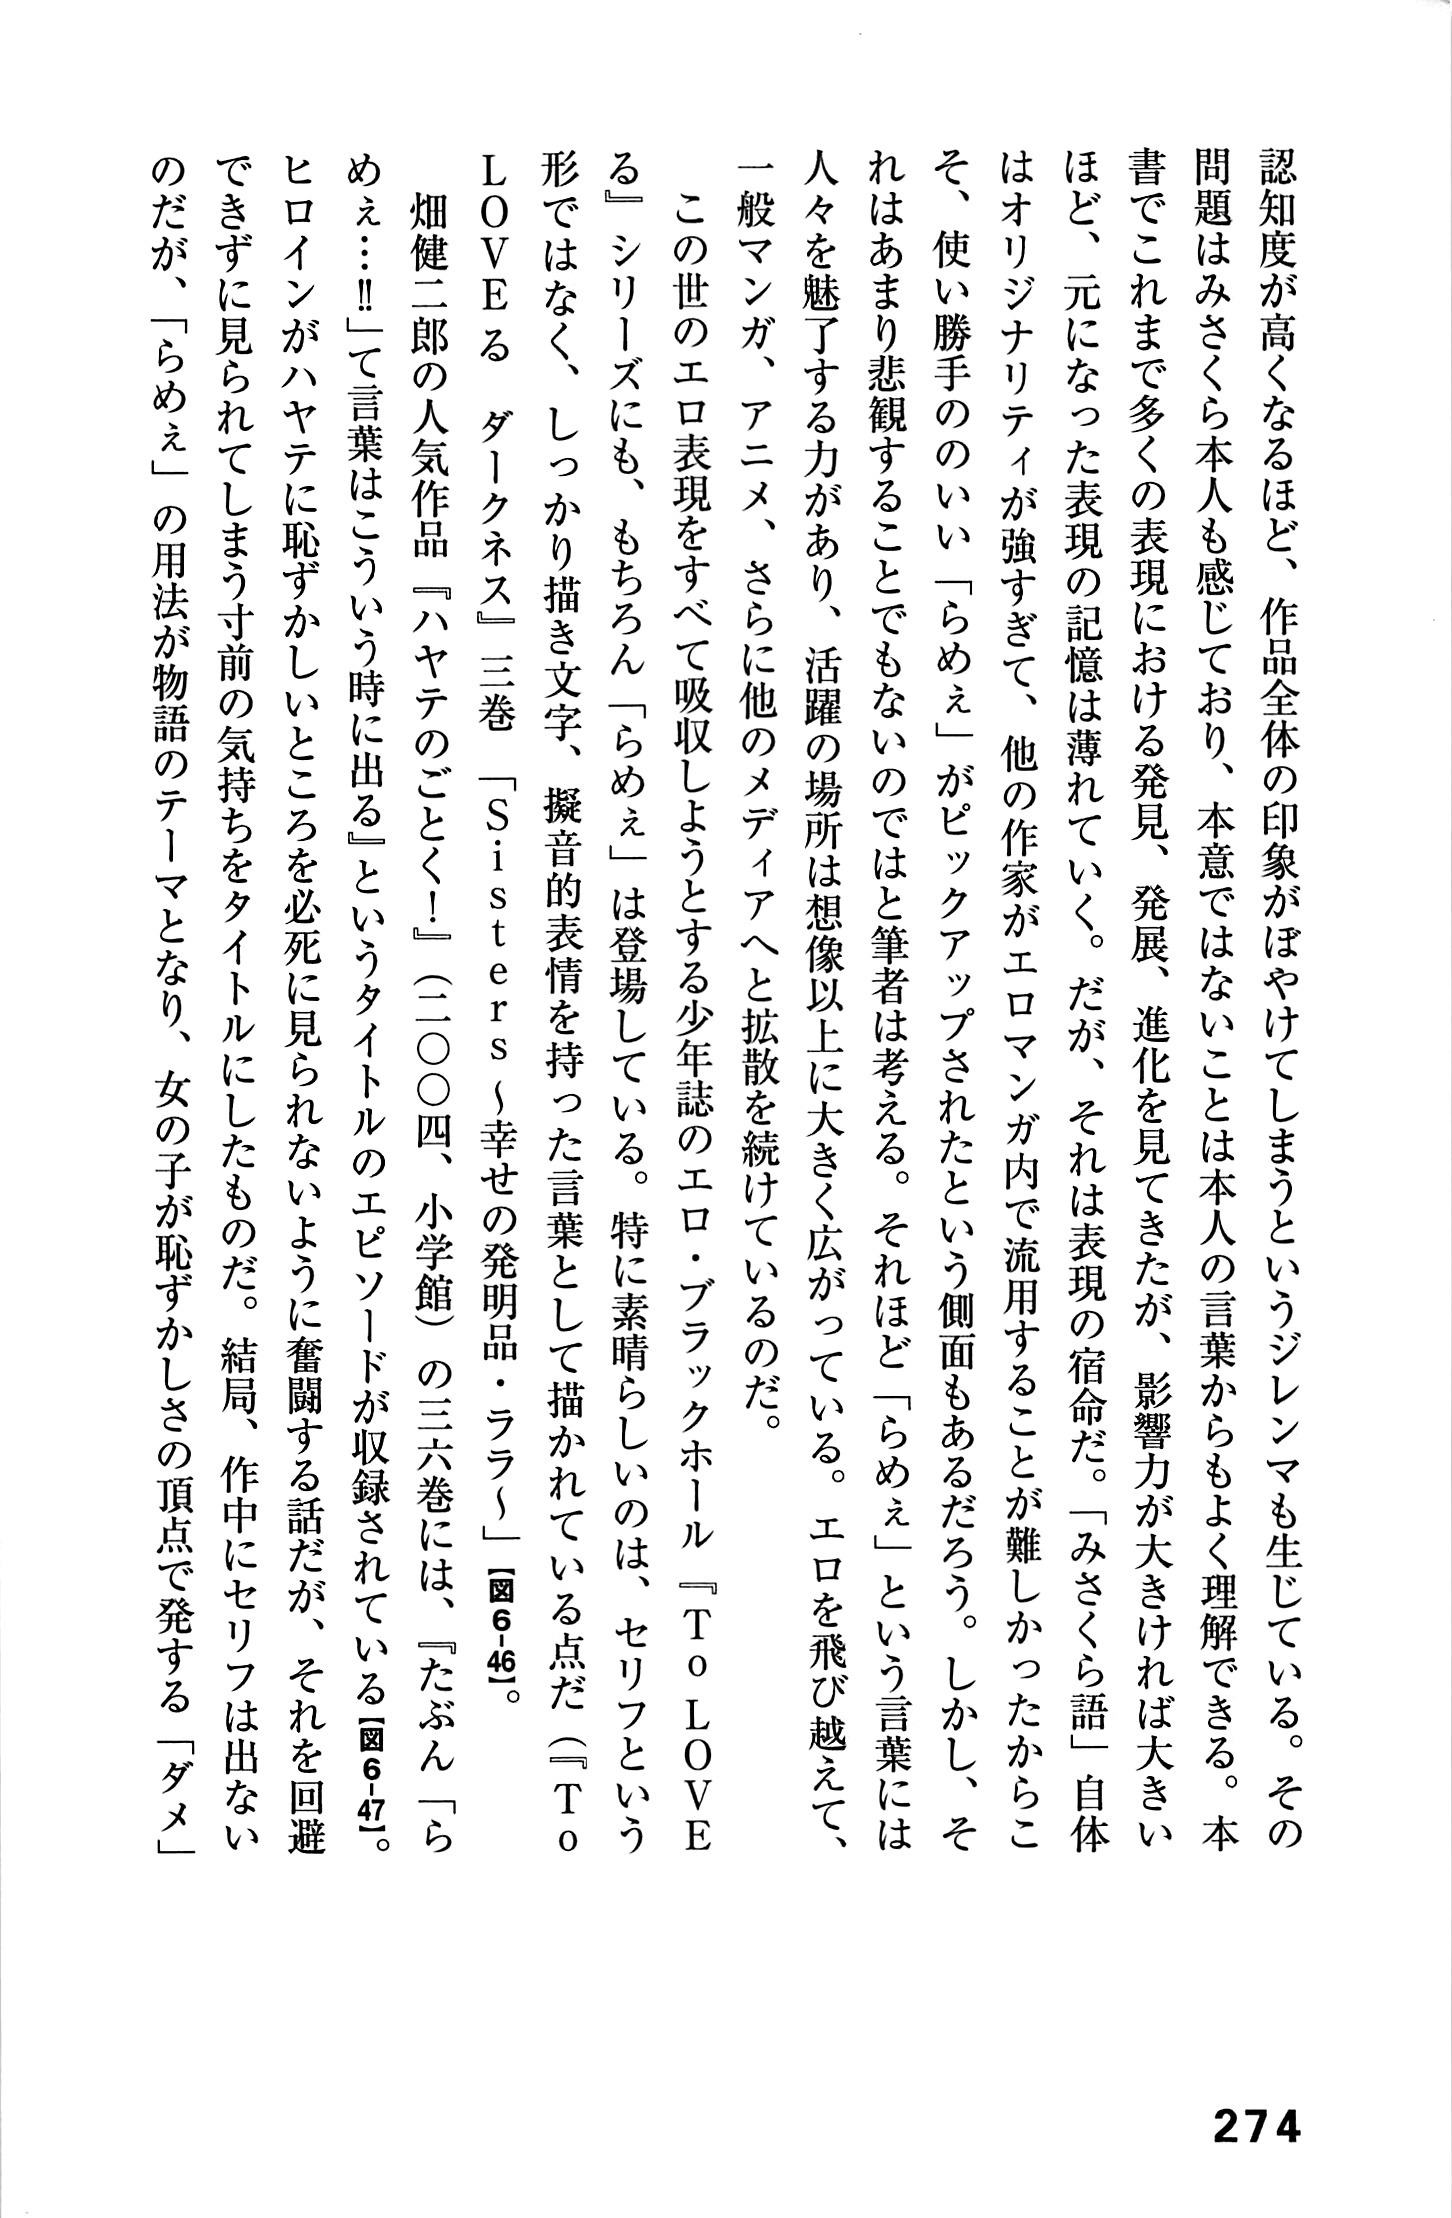 認知度が高くなるほど、作品全体の印象がぼやけてしまうというジレンマも生じている。その
問題はみさくら本人も感じており、本意ではないことは本人の言葉からもよく理解できる。本
書でこれまで多くの表現における発見、発展、進化を見てきたが、影響力が大きければ大きい
ほど、元になった表現の記憶は薄れていく。だが、それは表現の宿命だ。「みさくら語」自体
はオリジナリティが強すぎて、他の作家がエロマンガ内で流用することが難しかったからこ
そ、使い勝手ののいい「らめぇ」がピックアップされたという側面もあるだろう。しかし、そ
れはあまり悲観することでもないのではと筆者は考える。それほど「らめぇ」という言葉には
人々を魅了する力があり、活躍の場所は想像以上に大きく広がっている。エロを飛び越えて、
一般マンガ、アニメ、さらに他のメディアへと拡散を続けているのだ。
　この世のエロ表現をすべて吸収しようとする少年誌のエロ・ブラックホール『To LOVE
る』シリーズにも、もちろん「らめぇ」は登場している。特に素晴らしいのは、セリフという
形ではなく、しっかり描き文字、擬音的表情を持った言葉として描かれている点だ（『To
LOVEる　ダークネス』三巻「Sisters～幸せの発明品・ララ～」【図6-46】。
　畑健二郎の人気作品『ハヤテのごとく！』（二〇〇四、小学館）の三六巻には、『たぶん「ら
めぇ…!!」て言葉はこういう時に出る』というタイトルのエピソードが収録されている【図6-47】。
ヒロインがハヤテに恥ずかしいところを必死に見られないように奮闘する話だが、それを回避
できずに見られてしまう寸前の気持ちをタイトルにしたものだ。結局、作中にセリフは出ない
のだが、「らめぇ」の用法が物語のテーマとなり、女の子が恥ずかしさの頂点で発する「ダメ」
274